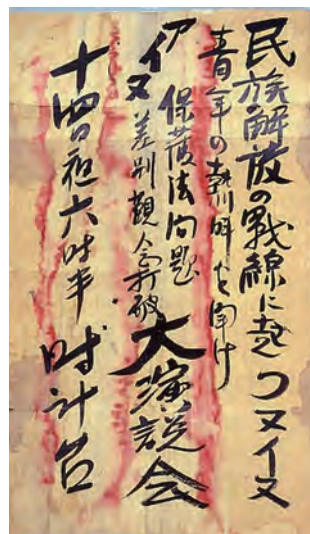 民族解放の戰線に起つアイヌ
青年の熱弁を聞け
アイヌ
保護法問題
差別觀念打破
大演説会
十四日夜六時半 時計台